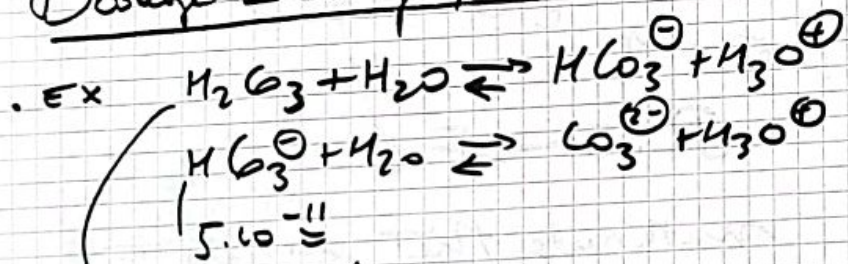 . Ex H₂CO₃ + H₂O ⇌ HCO₃⊖ + H₃O⊕
HCO₃⊖ + H₂O ⇌ CO₃²⁻ + H₃O⊕
5.10⁻¹¹